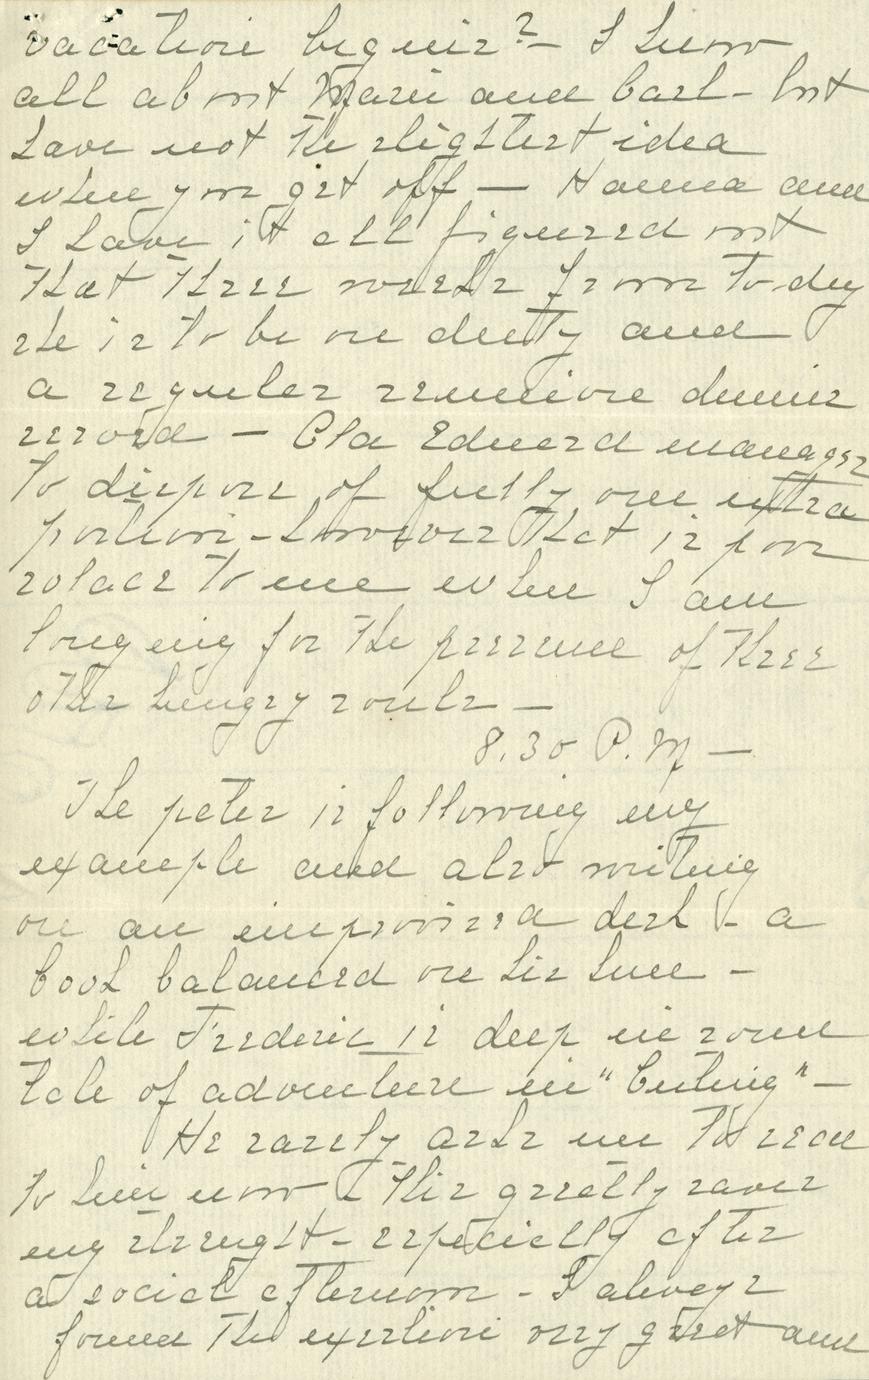 vacation begins? - I know
all about Marie and Carl - but
have not the slightest idea
when you get off - Hanna and
I have it all figured out
that three weeks from to-day
she is to be on duty and
a regular reunion dinner
served - Edward manages
to dispose of fully one extra
portion - however that is poor
solace to me when I am
longing for the presence of three
other hungry souls -
8.30 P.M -
The pater is following my
example and also writing
on an improvised desk - a
book balanced on his knee -
while Frederic is deep in some
tale of adventure in "Outing" -
He rarely asks me to read
to him now - this greatly saves
my strength - especially after
a social afternoon - I always
found the exertion very great and